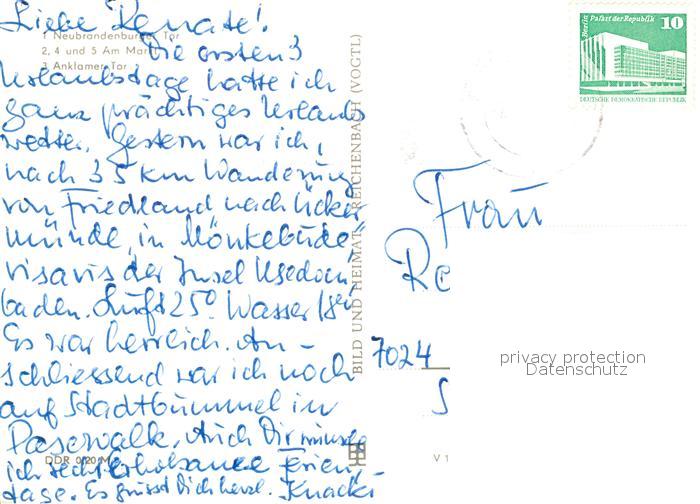 Liebe Renate!
1 Neubrandenburg, Tor
Die ersten 3
2, 4 und 5 Am Mar
Urlaubstage hatte ich
3 Anklamer Tor
ganz prächtiges Urlaubs
wetter. Gestern war ich,
nach 35 km Wanderung
von Friedland nach Ücker
münde, in "Mönkebude"
visavis der Insel Usedom
baden. Luft 25° Wasser 18°
Es war herrlich. An-
schliessend war ich noch
auf Stadtbummel in
Pasewalk. Auch Dir wünsche
ich recht erholsame Ferien-
DDR 0,20 M
tage. Es grüsst Dich herzl.
BILD UND HEIMAT REICHENBACH (VOGTL)
V 1
Berlin Palast der Republik
10
DEUTSCHE DEMOKRATISCHE REPUBLIK
Frau
Re
7024
privacy protection
Datenschutz